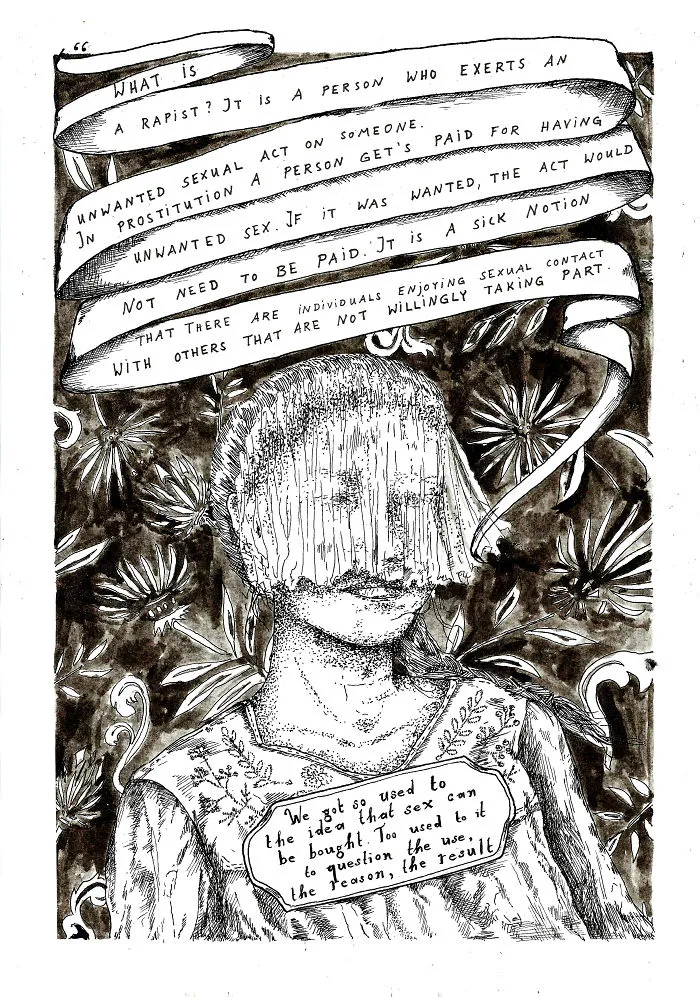 “
WHAT IS
A RAPIST? IT IS A PERSON WHO EXERTS AN
UNWANTED SEXUAL ACT ON SOMEONE.
IN PROSTITUTION A PERSON GET'S PAID FOR HAVING
UNWANTED SEX. IF IT WAS WANTED, THE ACT WOULD
NOT NEED TO BE PAID. IT IS A SICK NOTION
THAT THERE ARE INDIVIDUALS ENJOYING SEXUAL CONTACT
WITH OTHERS THAT ARE NOT WILLINGLY TAKING PART.
We got so used to
the idea that sex can
be bought. Too used to it
to question the use,
the reason, the result